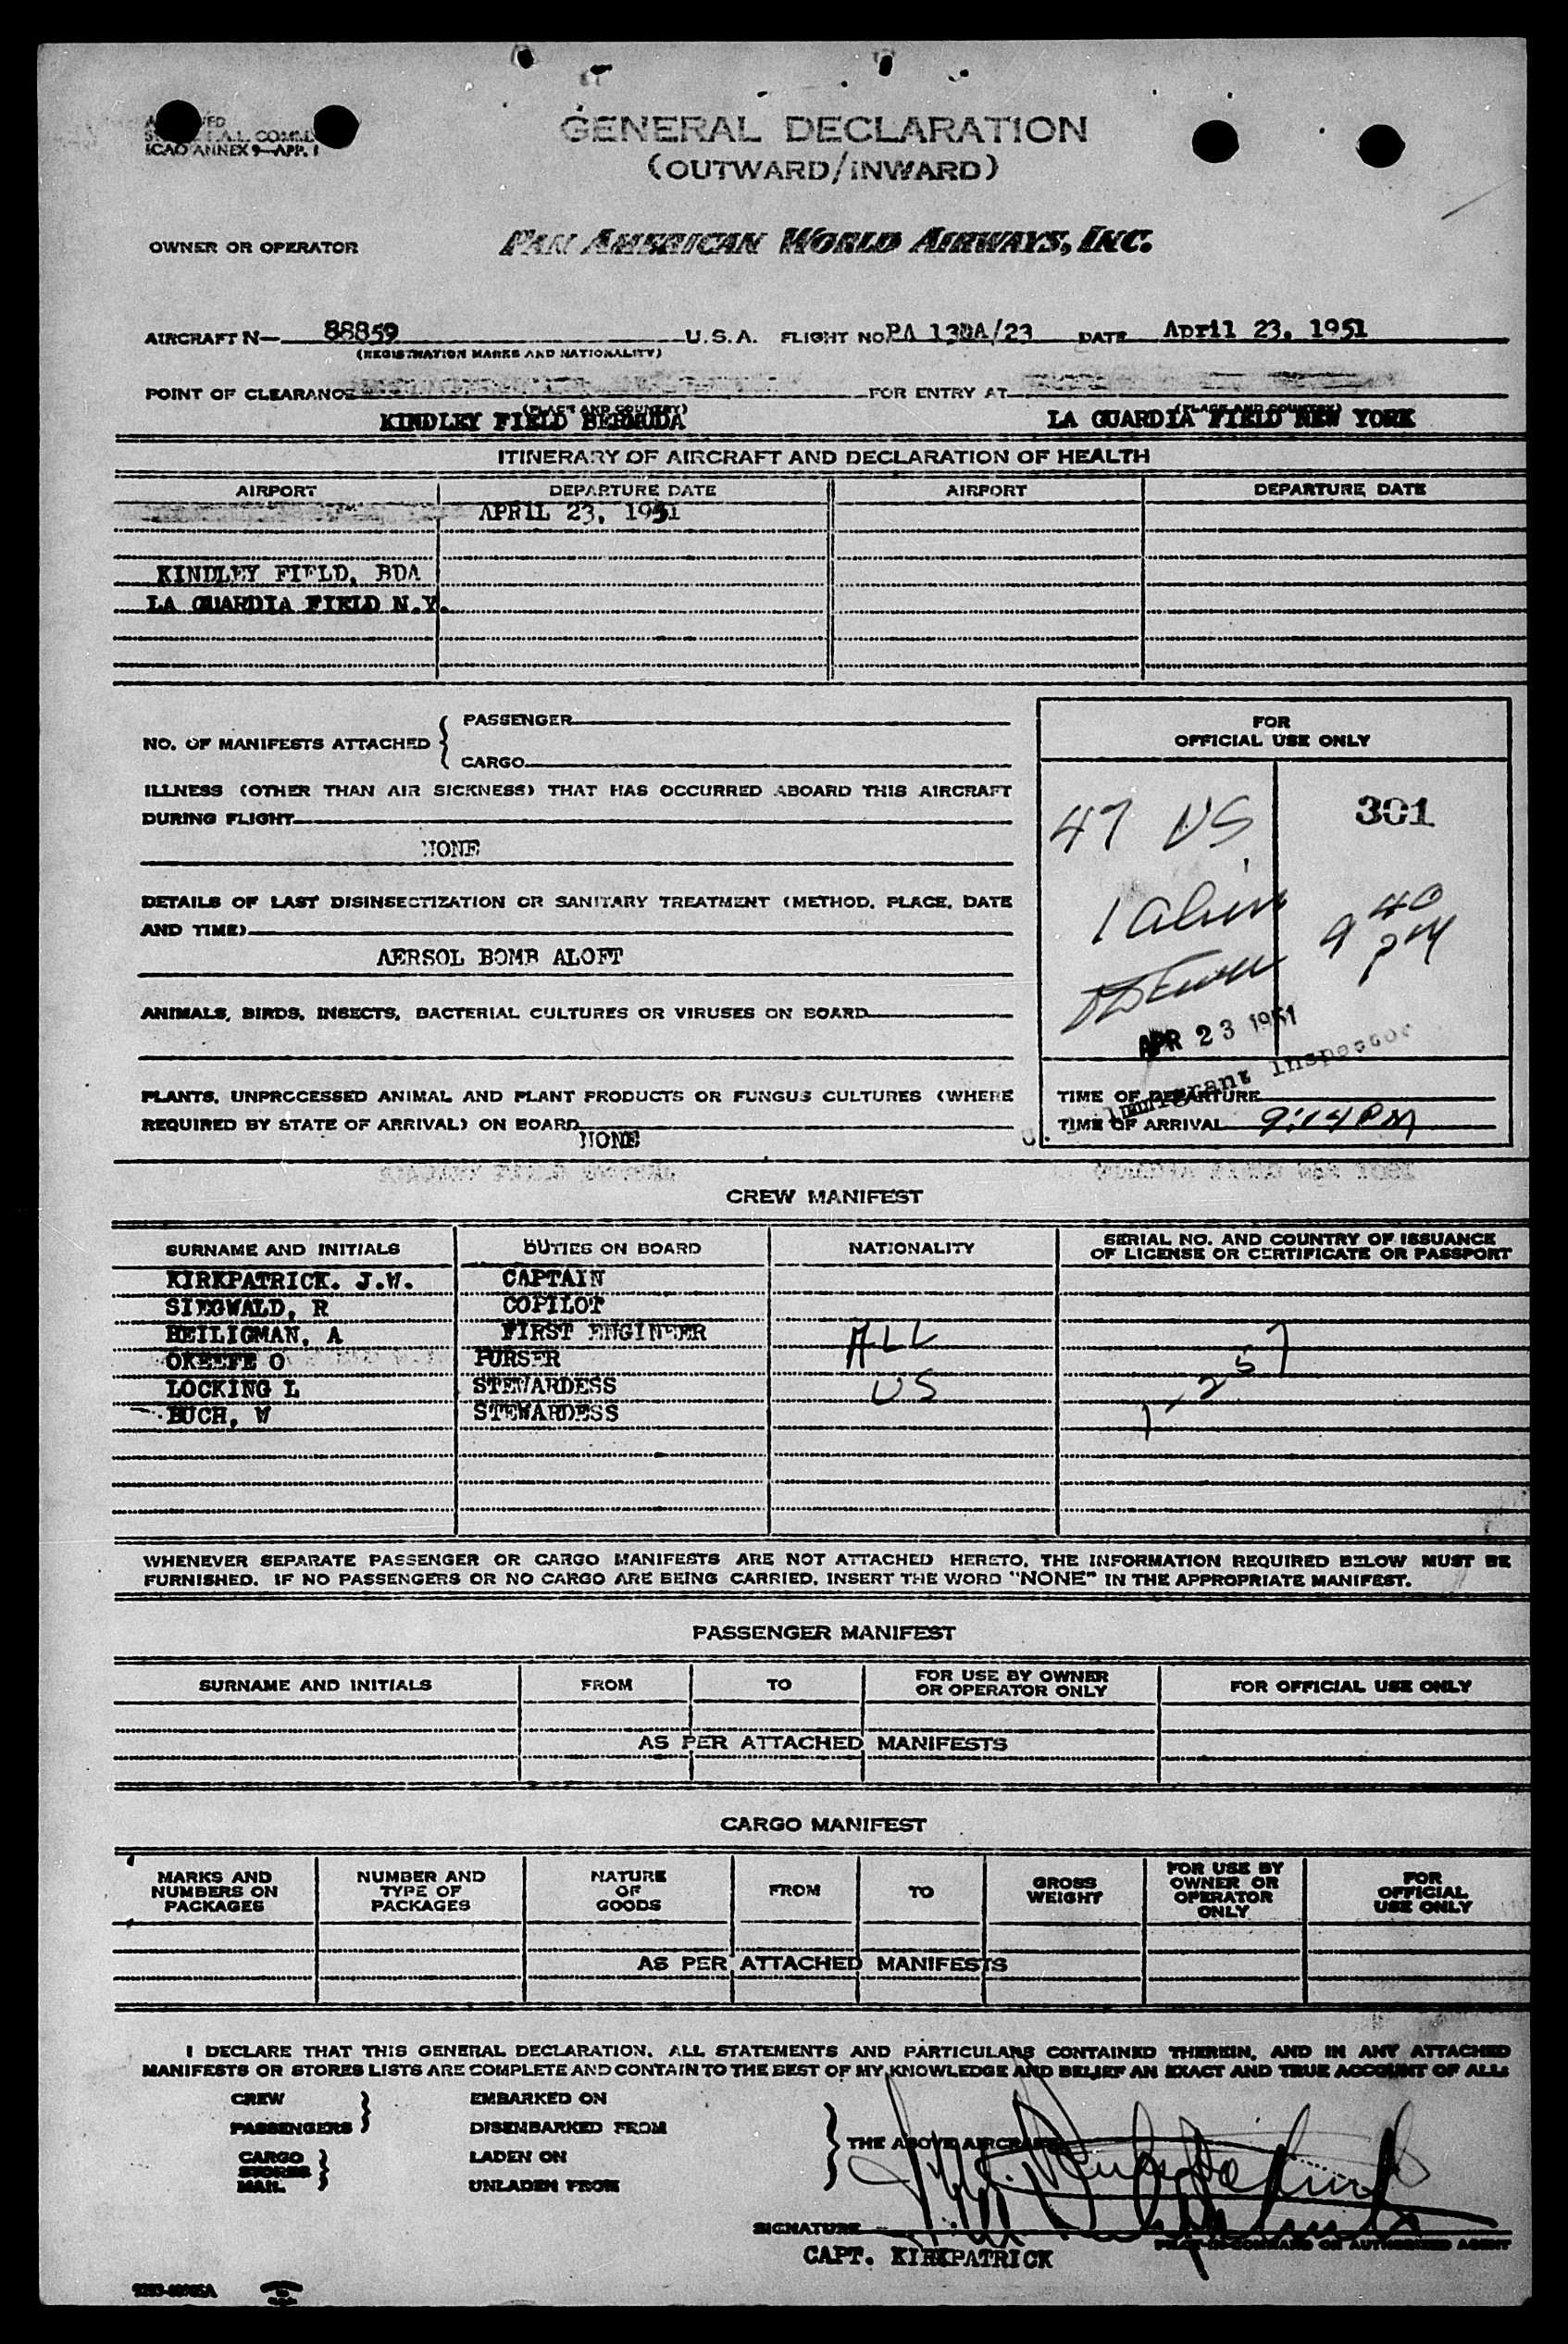 ICAO ANNEX 9—APP. 1
GENERAL DECLARATION
(OUTWARD/INWARD)
OWNER OR OPERATOR PAN AMERICAN WORLD AIRWAYS, INC.
AIRCRAFT N— 88859 U.S.A. FLIGHT NO. PA 130A/23 DATE April 23, 1951
(REGISTRATION MARKS AND NATIONALITY)
POINT OF CLEARANCE FOR ENTRY AT
(PLACE AND COUNTRY) (PLACE AND COUNTRY)
KINDLEY FIELD BERMUDA LA GUARDIA FIELD NEW YORK
ITINERARY OF AIRCRAFT AND DECLARATION OF HEALTH
AIRPORT DEPARTURE DATE AIRPORT DEPARTURE DATE
APRIL 23, 1951
KINDLEY FIELD, BDA
LA GUARDIA FIELD N.Y.
NO. OF MANIFESTS ATTACHED { PASSENGER
CARGO
ILLNESS (OTHER THAN AIR SICKNESS) THAT HAS OCCURRED ABOARD THIS AIRCRAFT
DURING FLIGHT
NONE
DETAILS OF LAST DISINSECTIZATION OR SANITARY TREATMENT (METHOD, PLACE, DATE
AND TIME)
AERSOL BOMB ALOFT
ANIMALS, BIRDS, INSECTS, BACTERIAL CULTURES OR VIRUSES ON BOARD
PLANTS, UNPROCESSED ANIMAL AND PLANT PRODUCTS OR FUNGUS CULTURES (WHERE
REQUIRED BY STATE OF ARRIVAL) ON BOARD
NONE
FOR
OFFICIAL USE ONLY
47 US
301
1 alien
9 40 PM
APR 23 1951
Immigrant Inspector
TIME OF DEPARTURE
TIME OF ARRIVAL 9:14 PM
CREW MANIFEST
SURNAME AND INITIALS DUTIES ON BOARD NATIONALITY SERIAL NO. AND COUNTRY OF ISSUANCE
OF LICENSE OR CERTIFICATE OR PASSPORT
KIRKPATRICK. J.W. CAPTAIN
SIEGWALD, R COPILOT
HEILIGMAN, A FIRST ENGINEER ALL
OKEEFE O PURSER
LOCKING L STEWARDESS US
BUCH, W STEWARDESS
1-257
WHENEVER SEPARATE PASSENGER OR CARGO MANIFESTS ARE NOT ATTACHED HERETO, THE INFORMATION REQUIRED BELOW MUST BE
FURNISHED. IF NO PASSENGERS OR NO CARGO ARE BEING CARRIED, INSERT THE WORD "NONE" IN THE APPROPRIATE MANIFEST.
PASSENGER MANIFEST
SURNAME AND INITIALS FROM TO FOR USE BY OWNER
OR OPERATOR ONLY FOR OFFICIAL USE ONLY
AS PER ATTACHED MANIFESTS
CARGO MANIFEST
MARKS AND
NUMBERS ON
PACKAGES NUMBER AND
TYPE OF
PACKAGES NATURE
OF
GOODS FROM TO GROSS
WEIGHT FOR USE BY
OWNER OR
OPERATOR
ONLY FOR
OFFICIAL
USE ONLY
AS PER ATTACHED MANIFESTS
I DECLARE THAT THIS GENERAL DECLARATION, ALL STATEMENTS AND PARTICULARS CONTAINED THEREIN, AND IN ANY ATTACHED
MANIFESTS OR STORES LISTS ARE COMPLETE AND CONTAIN TO THE BEST OF MY KNOWLEDGE AND BELIEF AN EXACT AND TRUE ACCOUNT OF ALL:
CREW EMBARKED ON
PASSENGERS DISEMBARKED FROM
THE ABOVE AIRCRAFT
CARGO LADEN ON
STORES
MAIL UNLADEN FROM
SIGNATURE
PILOT-IN-COMMAND OR AUTHORIZED AGENT
CAPT. KIRKPATRICK